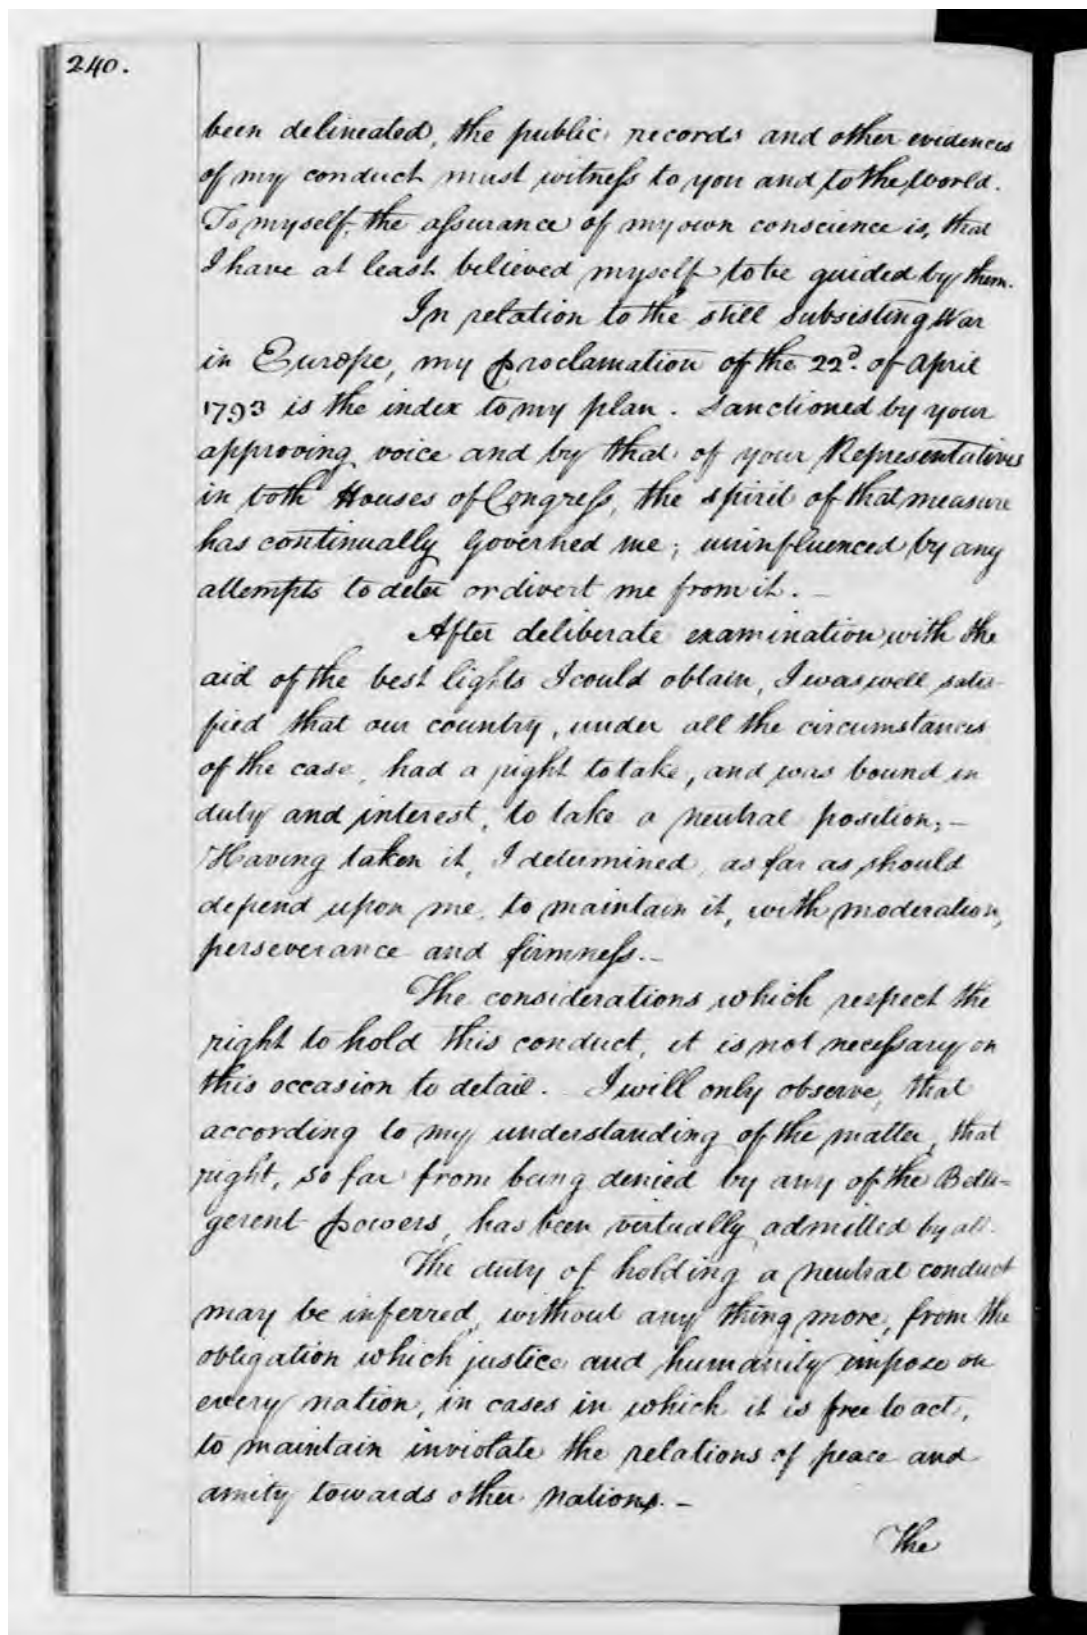 240.
been delineated, the public records and other evidences
of my conduct must witness to you and to the World.
To myself, the assurance of my own conscience is, that
I have at least believed myself to be guided by them.
In relation to the still subsisting War
in Europe, my proclamation of the 22d. of April
1793 is the index to my plan. Sanctioned by your
approving voice and by that of your Representatives
in both Houses of Congress, the spirit of that measure
has continually governed me; uninfluenced by any
attempts to deter or divert me from it. —
After deliberate examination with the
aid of the best lights I could obtain, I was well satis-
fied that our country, under all the circumstances
of the case, had a right to take, and was bound in
duty and interest, to take a neutral position; —
Having taken it, I determined, as far as should
depend upon me, to maintain it, with moderation,
perseverance and firmness. —
The considerations which respect the
right to hold this conduct, it is not necessary on
this occasion to detail. I will only observe, that
according to my understanding of the matter, that
right, so far from being denied by any of the Belli-
gerent powers, has been virtually admitted by all.
The duty of holding a neutral conduct
may be inferred, without any thing more, from the
obligation which justice and humanity impose on
every nation, in cases in which it is free to act,
to maintain inviolate the relations of peace and
amity towards other nations. —
The